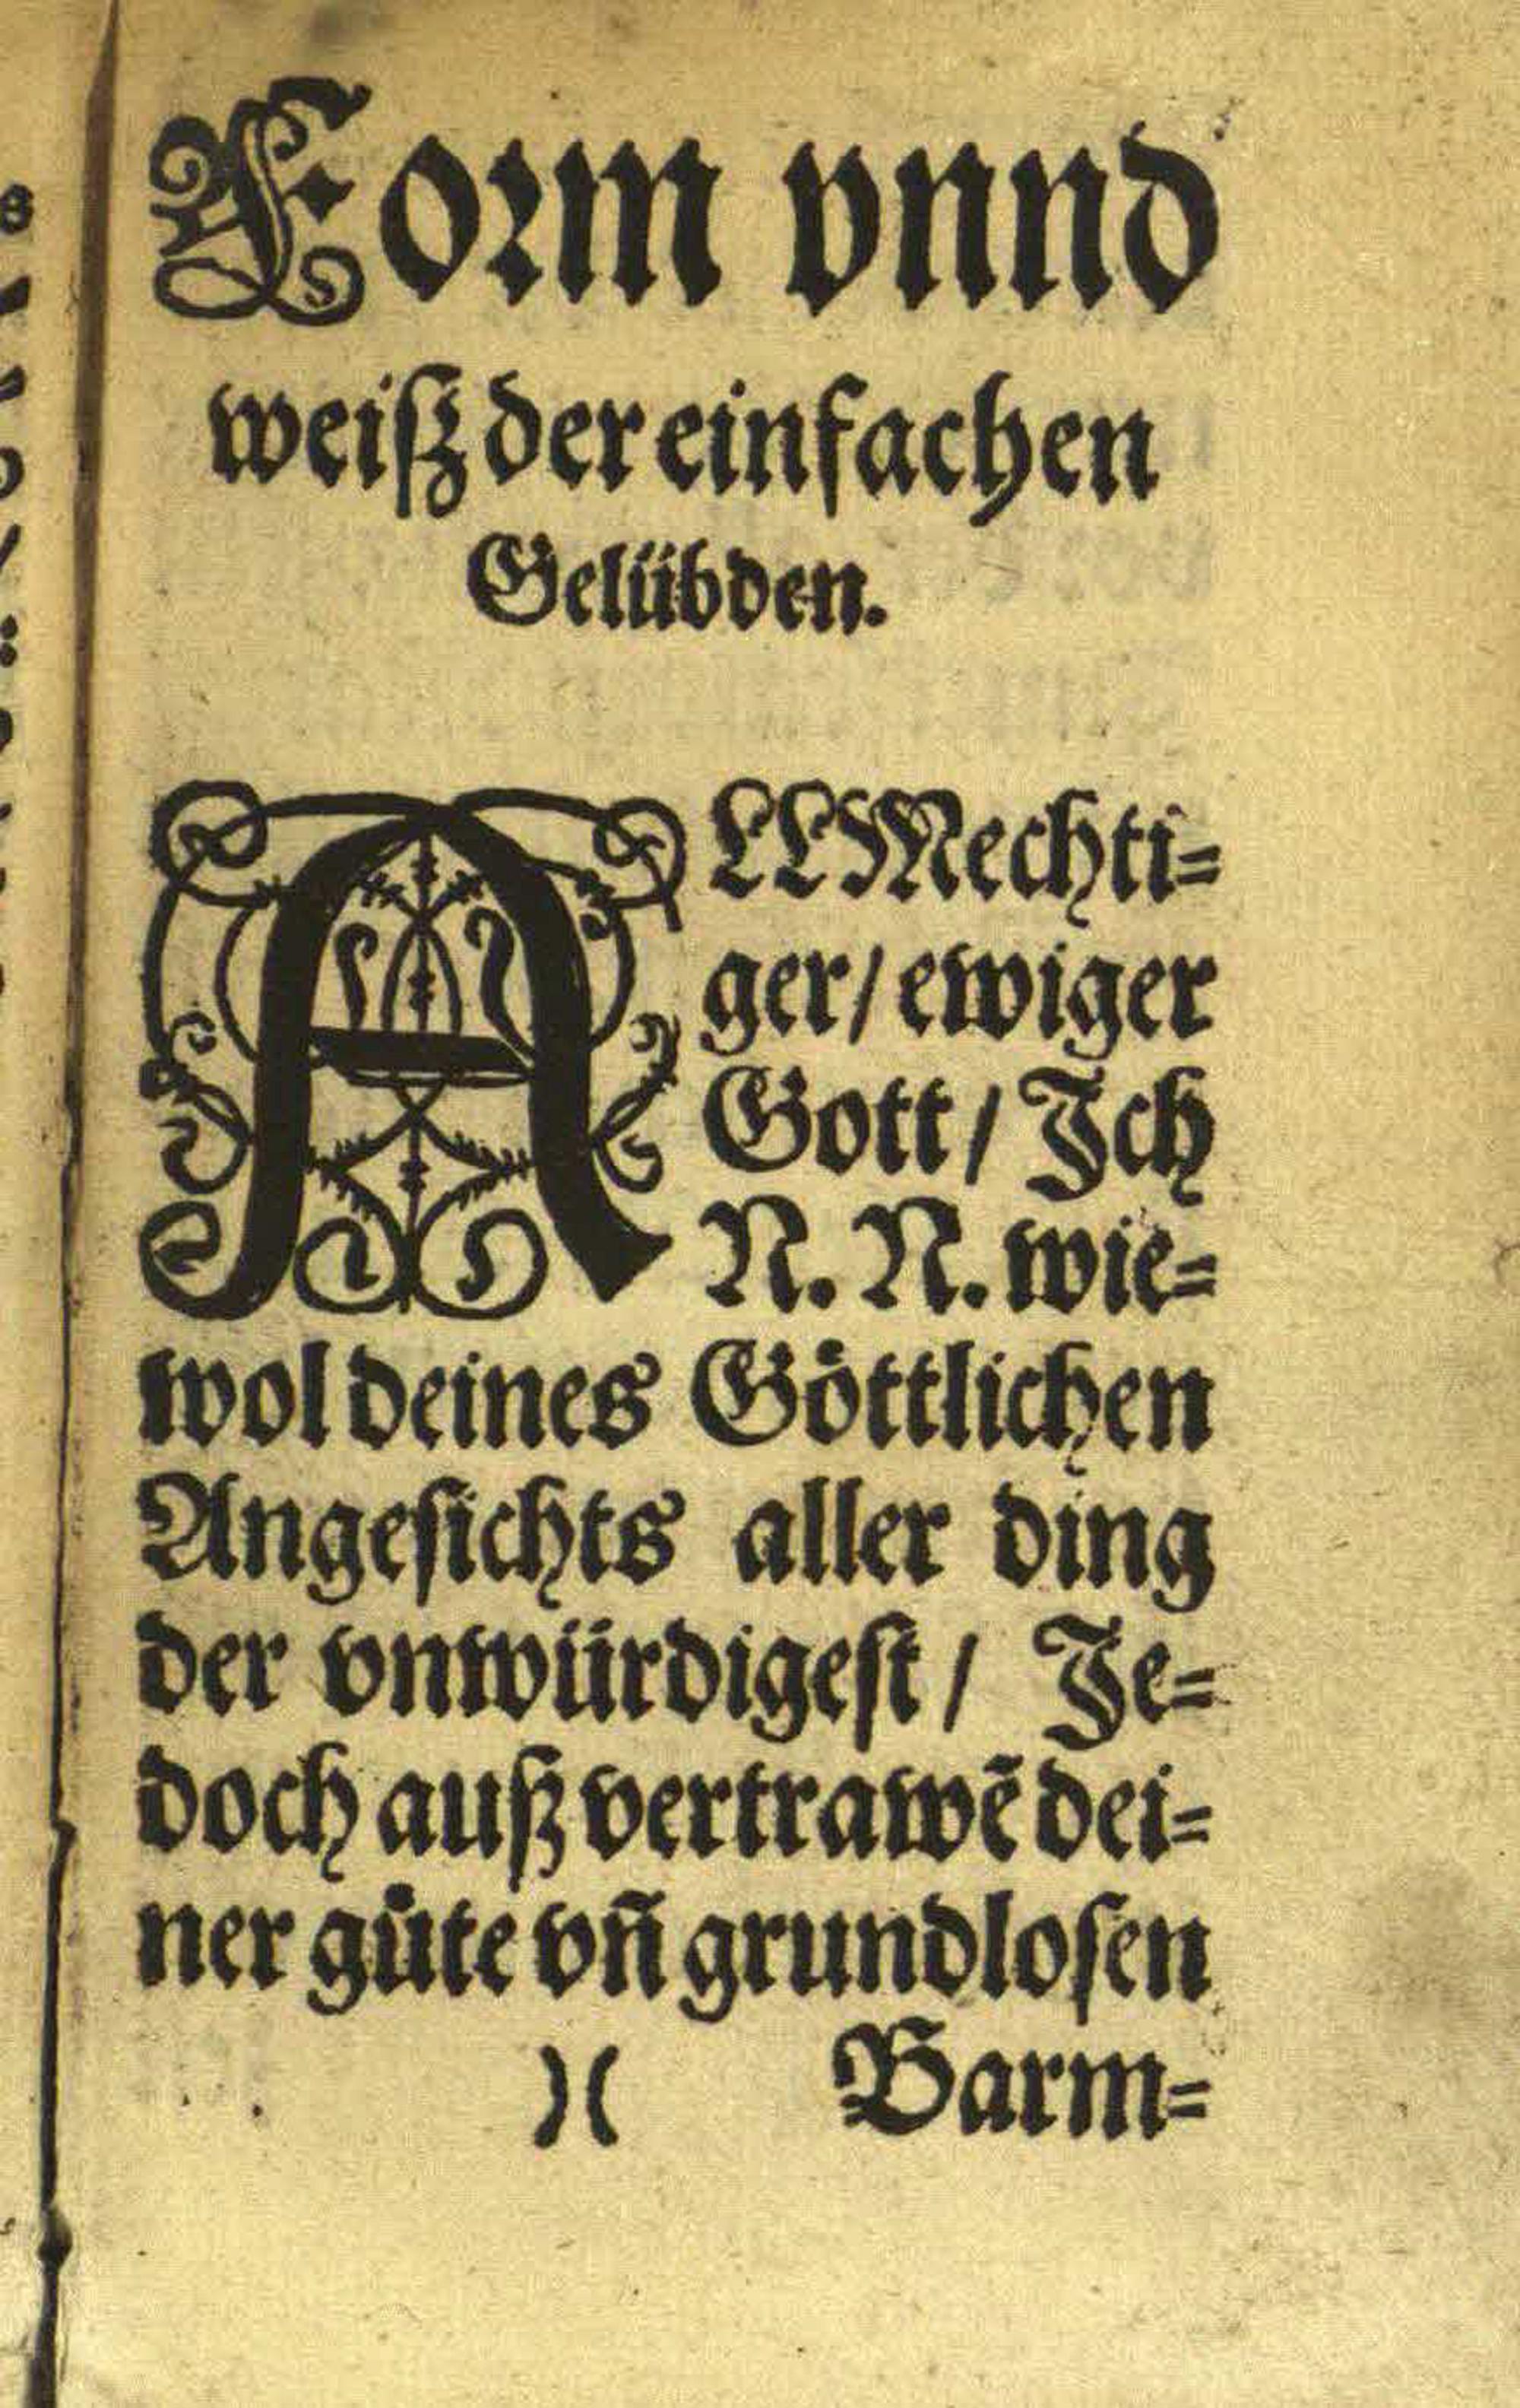 Form vnnd
weiß der einfachen
Gelübden.
ALLMechti=
ger/ ewiger
Gott/ Ich
N. N. wie=
wol deines Göttlichen
Angesichts aller ding
der vnwürdigest/ Je=
doch auß vertrawẽ dei=
ner gůte vñ grundlosen
)( Barm=